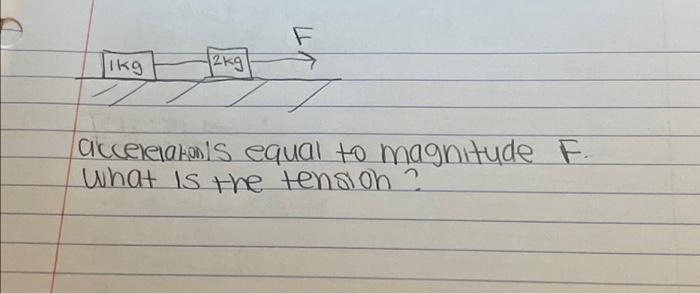 F
1kg 2kg
acceleration is equal to magnitude F.
What is the tension?